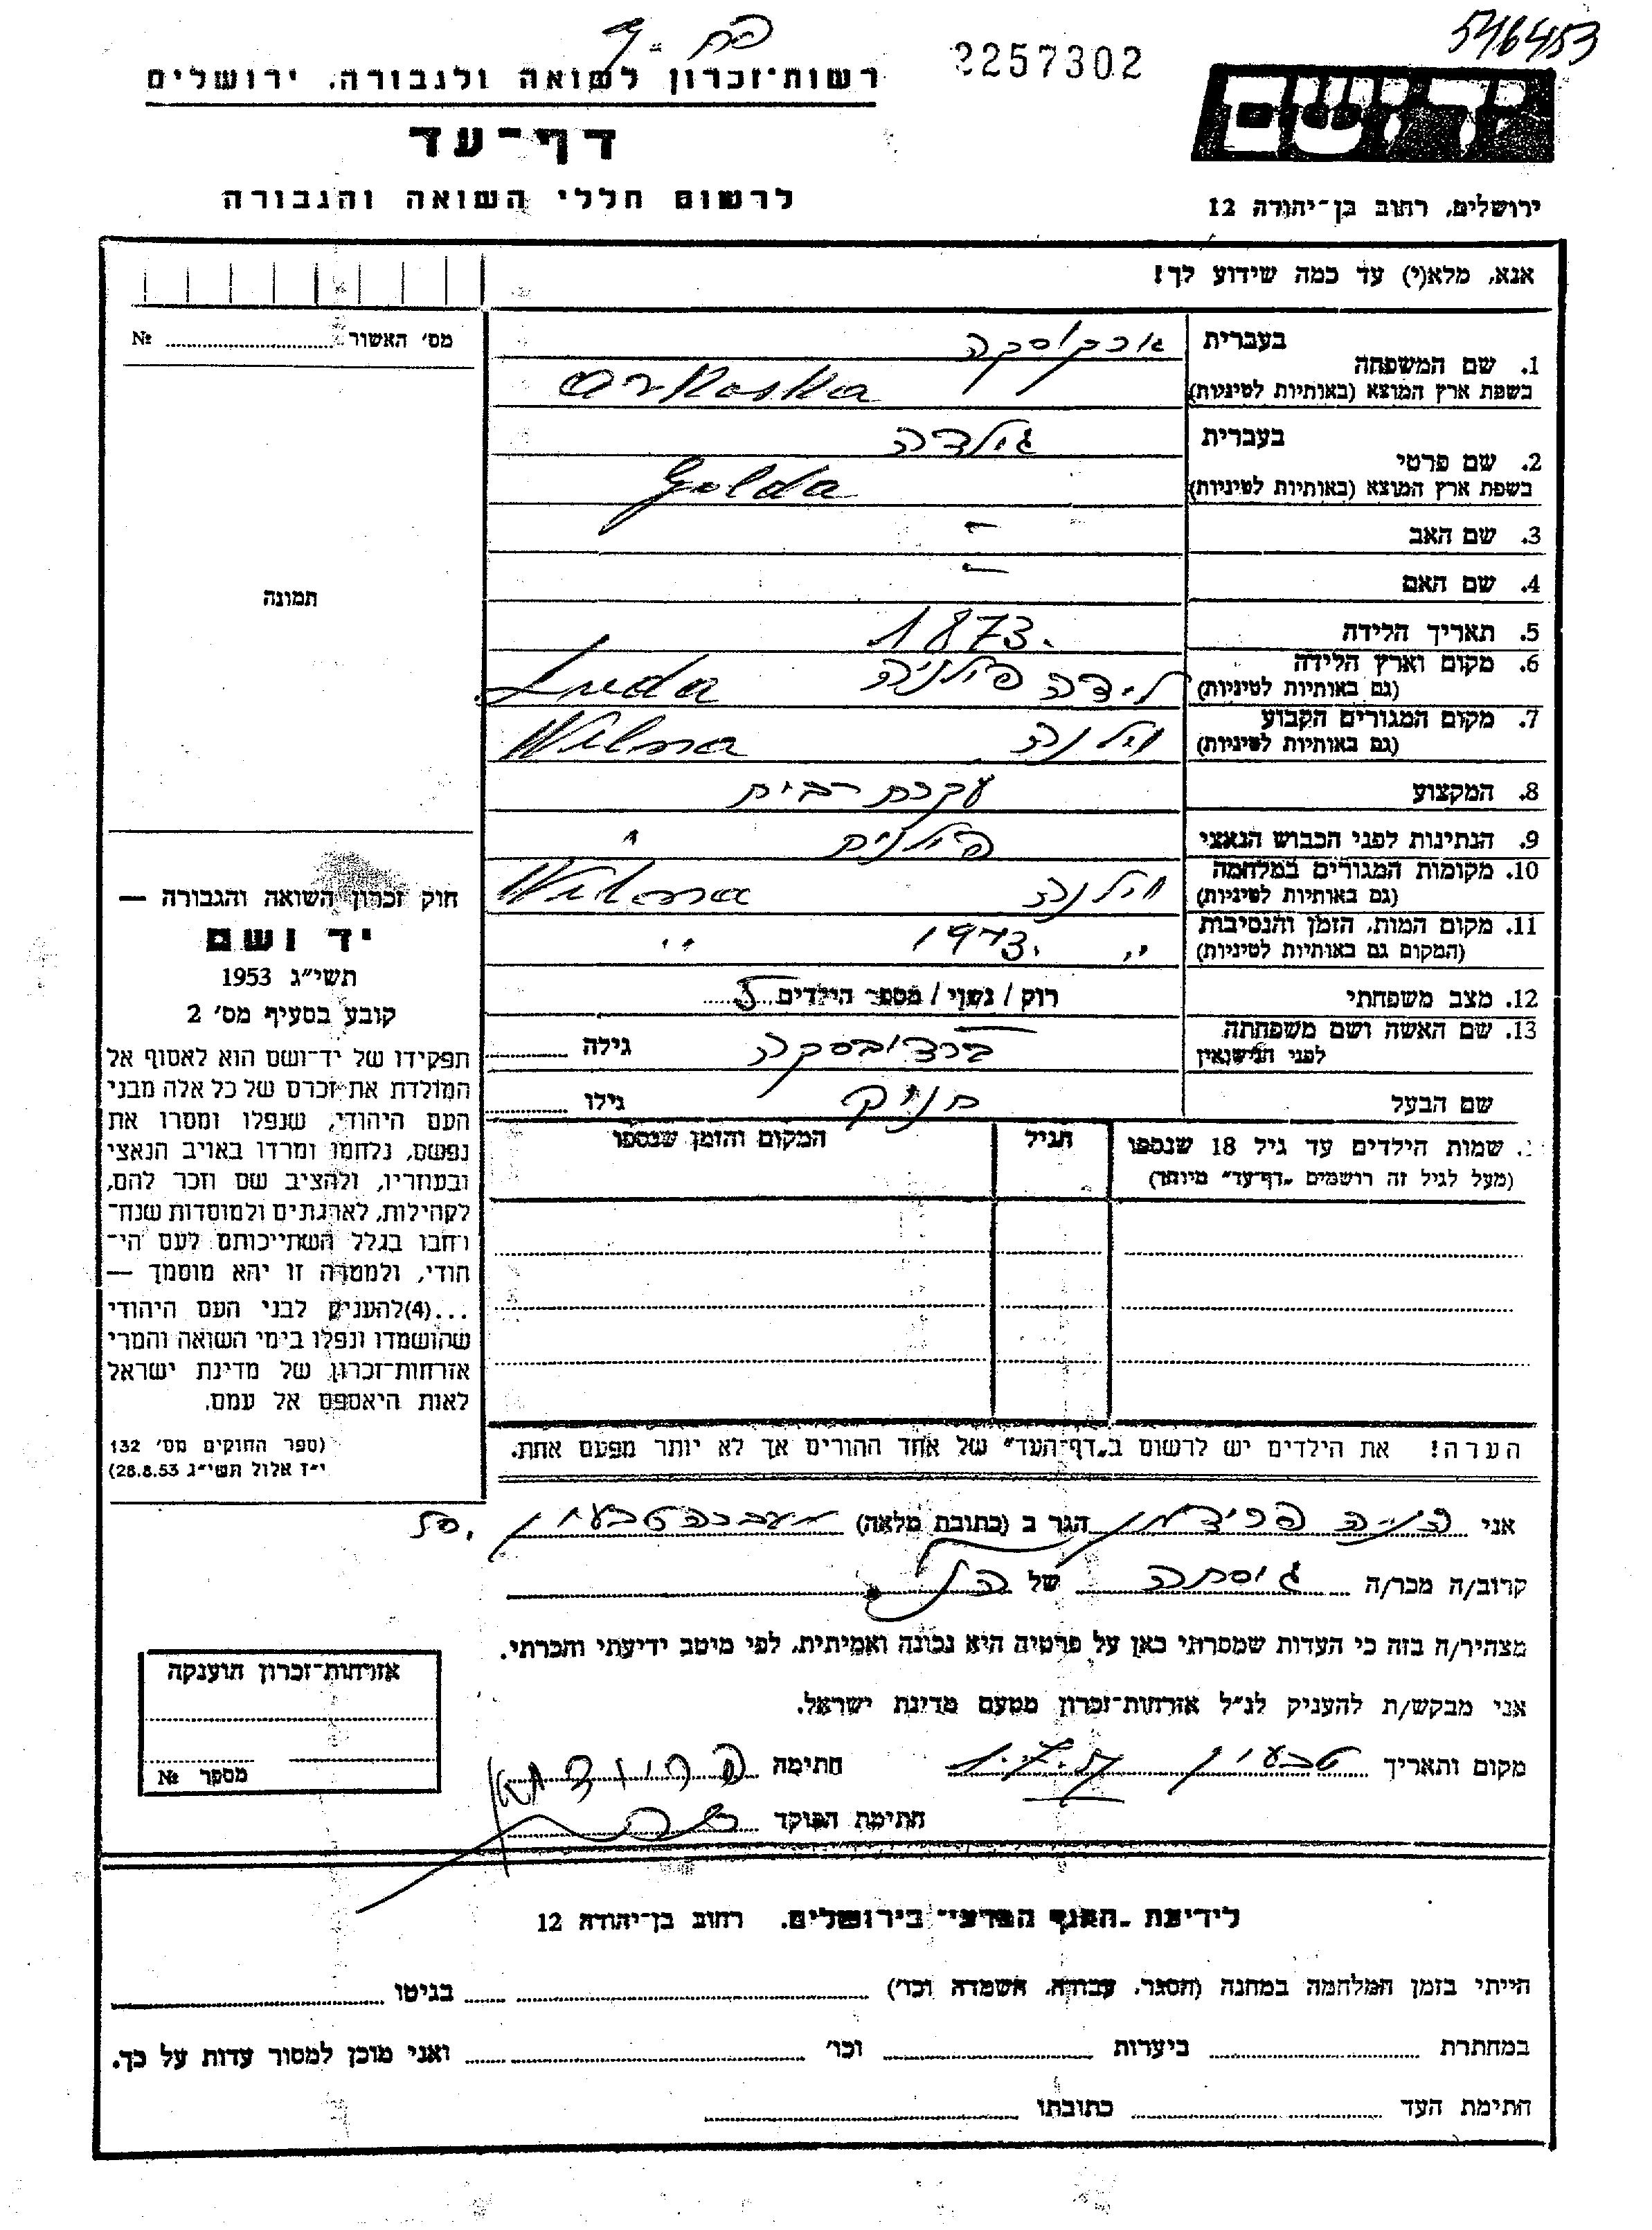 546453
2257302
יד ושם
רשות־זכרון לשואה ולגבורה, ירושלים
דף־עד
לרשום חללי השואה והגבורה
ירושלים, רחוב בן־יהודה 12
אנא, מלא(י) עד כמה שידוע לך!
מס' האשור № 
1. שם המשפחה בעברית ארקוסקה
בשפת ארץ המוצא (באותיות לטיניות) Arkoska
2. שם פרטי בעברית גולדה
בשפת ארץ המוצא (באותיות לטיניות) Golda
3. שם האב -
4. שם האם -
תמונה
5. תאריך הלידה 1873.
6. מקום וארץ הלידה לידה פולניה Luda
(גם באותיות לטיניות)
7. מקום המגורים הקבוע וילנה Wilna
(גם באותיות לטיניות)
8. המקצוע עקרת בית
9. הנתינות לפני הכבוש הנאצי פולנית
10. מקומות המגורים במלחמה וילנה Wilna
(גם באותיות לטיניות)
11. מקום המות, הזמן והנסיבות " 1943. "
(המקום גם באותיות לטיניות)
12. מצב משפחתי רווק / נשוי / מספר הילדים 5
13. שם האשה ושם משפחתה
לפני הנישואין גילה
שם הבעל גילו
חוק זכרון השואה והגבורה —
יד ושם
תשי"ג 1953
קובע בסעיף מס' 2
תפקידו של יד־ושם הוא לאסוף אל
המולדת את זכרם של כל אלה מבני
העם היהודי, שנפלו ומסרו את
נפשם, נלחמו ומרדו באויב הנאצי
ובעוזריו, ולהציב שם וזכר להם,
לקהילות, לארגונים ולמוסדות שנח־
רבו בגלל השתייכותם לעם הי־
הודי, ולמטרה זו יהא מוסמך —
...(4) להעניק לבני העם היהודי
שהושמדו ונפלו בימי השואה והמרי
אזרחות־זכרון של מדינת ישראל
לאות היאספם אל עמם.
(ספר החוקים מס' 132
י"ז אלול תשי"ג 28.8.53)
שמות הילדים עד גיל 18 שנספו הגיל המקום והזמן שנספו
(מעל לגיל זה רושמים "דף־עד" מיוחד)
הערה! את הילדים יש לרשום ב"דף־העד" של אחד ההורים אך לא יותר מפעם אחת.
אני פרידמן הגר ב (כתובת מלאה) מעברה טבעון
קרוב/ה מכר/ה של
מצהיר/ה בזה כי העדות שמסרתי כאן על פרטיה היא נכונה ואמיתית, לפי מיטב ידיעתי והכרתי.
אני מבקש/ת להעניק לנ"ל אזרחות־זכרון מטעם מדינת ישראל.
מקום ותאריך טבעון חתימה
חתימת הפוקד
אזרחות־זכרון הוענקה
מספר №
לידיעת "הגנזך המרכזי" בירושלים, רחוב בן־יהודה 12
הייתי בזמן המלחמה במחנה (הסגר, עבודה, השמדה וכו') בגיטו
במחתרת ביערות וכו' ואני מוכן למסור עדות על כך.
חתימת העד כתובתו